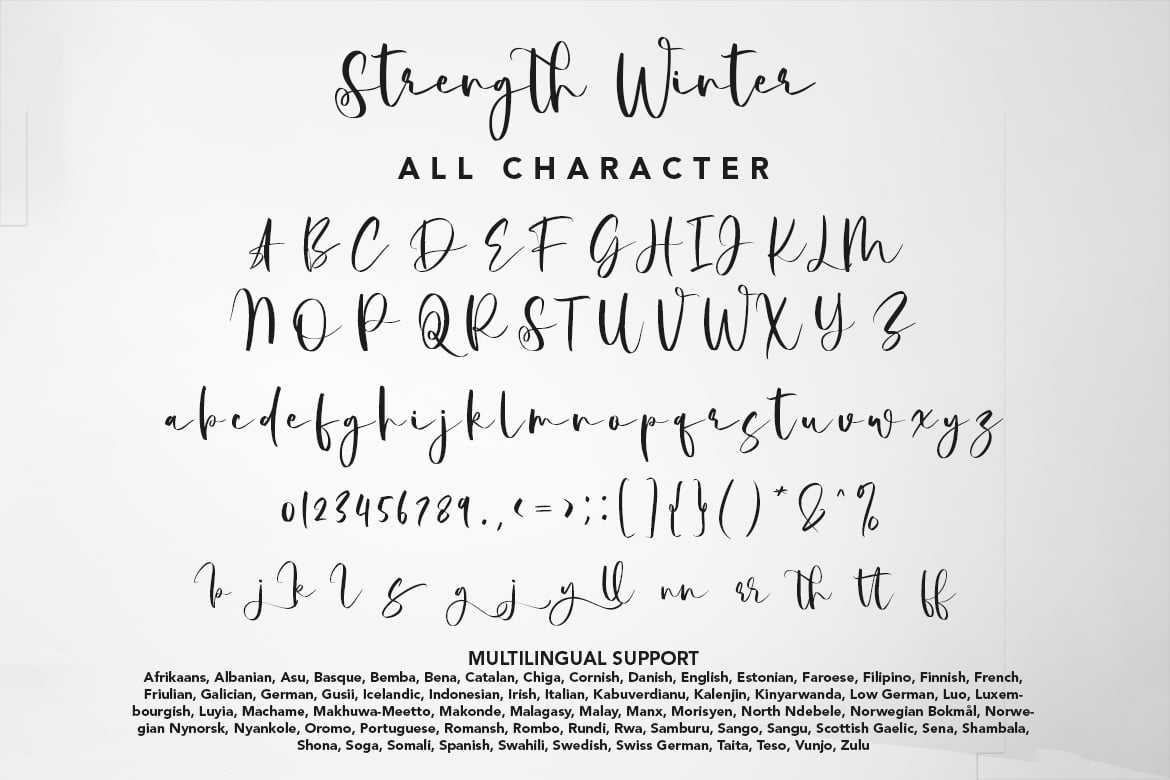 Strength Winter
ALL CHARACTER
A B C D E F G H I J K L M
N O P Q R S T U V W X Y Z
a b c d e f g h i j k l m n o p q r s t u v w x y z
0 1 2 3 4 5 6 7 8 9 . , < = > ; : [ ] { } ( ) * & ^ %
b j k l s g j y ll nn rr th tt ff
MULTILINGUAL SUPPORT
Afrikaans, Albanian, Asu, Basque, Bemba, Bena, Catalan, Chiga, Cornish, Danish, English, Estonian, Faroese, Filipino, Finnish, French,
Friulian, Galician, German, Gusii, Icelandic, Indonesian, Irish, Italian, Kabuverdianu, Kalenjin, Kinyarwanda, Low German, Luo, Luxem-
bourgish, Luyia, Machame, Makhuwa-Meetto, Makonde, Malagasy, Malay, Manx, Morisyen, North Ndebele, Norwegian Bokmål, Norwe-
gian Nynorsk, Nyankole, Oromo, Portuguese, Romansh, Rombo, Rundi, Rwa, Samburu, Sango, Sangu, Scottish Gaelic, Sena, Shambala,
Shona, Soga, Somali, Spanish, Swahili, Swedish, Swiss German, Taita, Teso, Vunjo, Zulu